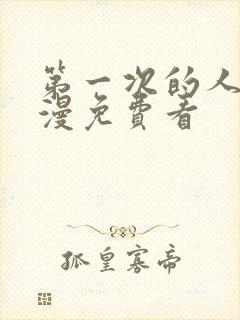 第一次的人
漫免費看
孤皇寡帝